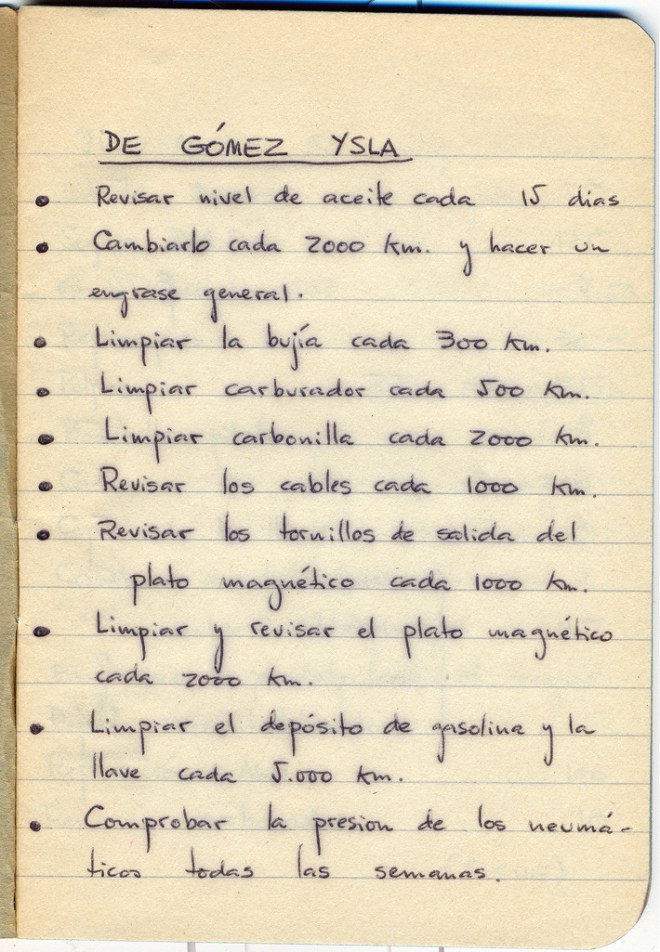 DE GÓMEZ YSLA
• Revisar nivel de aceite cada 15 dias
• Cambiarlo cada 2000 Km. y hacer un
engrase general.
• Limpiar la bujía cada 300 Km.
• Limpiar carburador cada 500 Km.
• Limpiar carbonilla cada 2000 Km.
• Revisar los cables cada 1000 Km.
• Revisar los tornillos de salida del
plato magnético cada 1000 Km.
• Limpiar y revisar el plato magnético
cada 2000 Km.
• Limpiar el depósito de gasolina y la
llave cada 5.000 Km.
• Comprobar la presion de los neumá-
ticos todas las semanas.